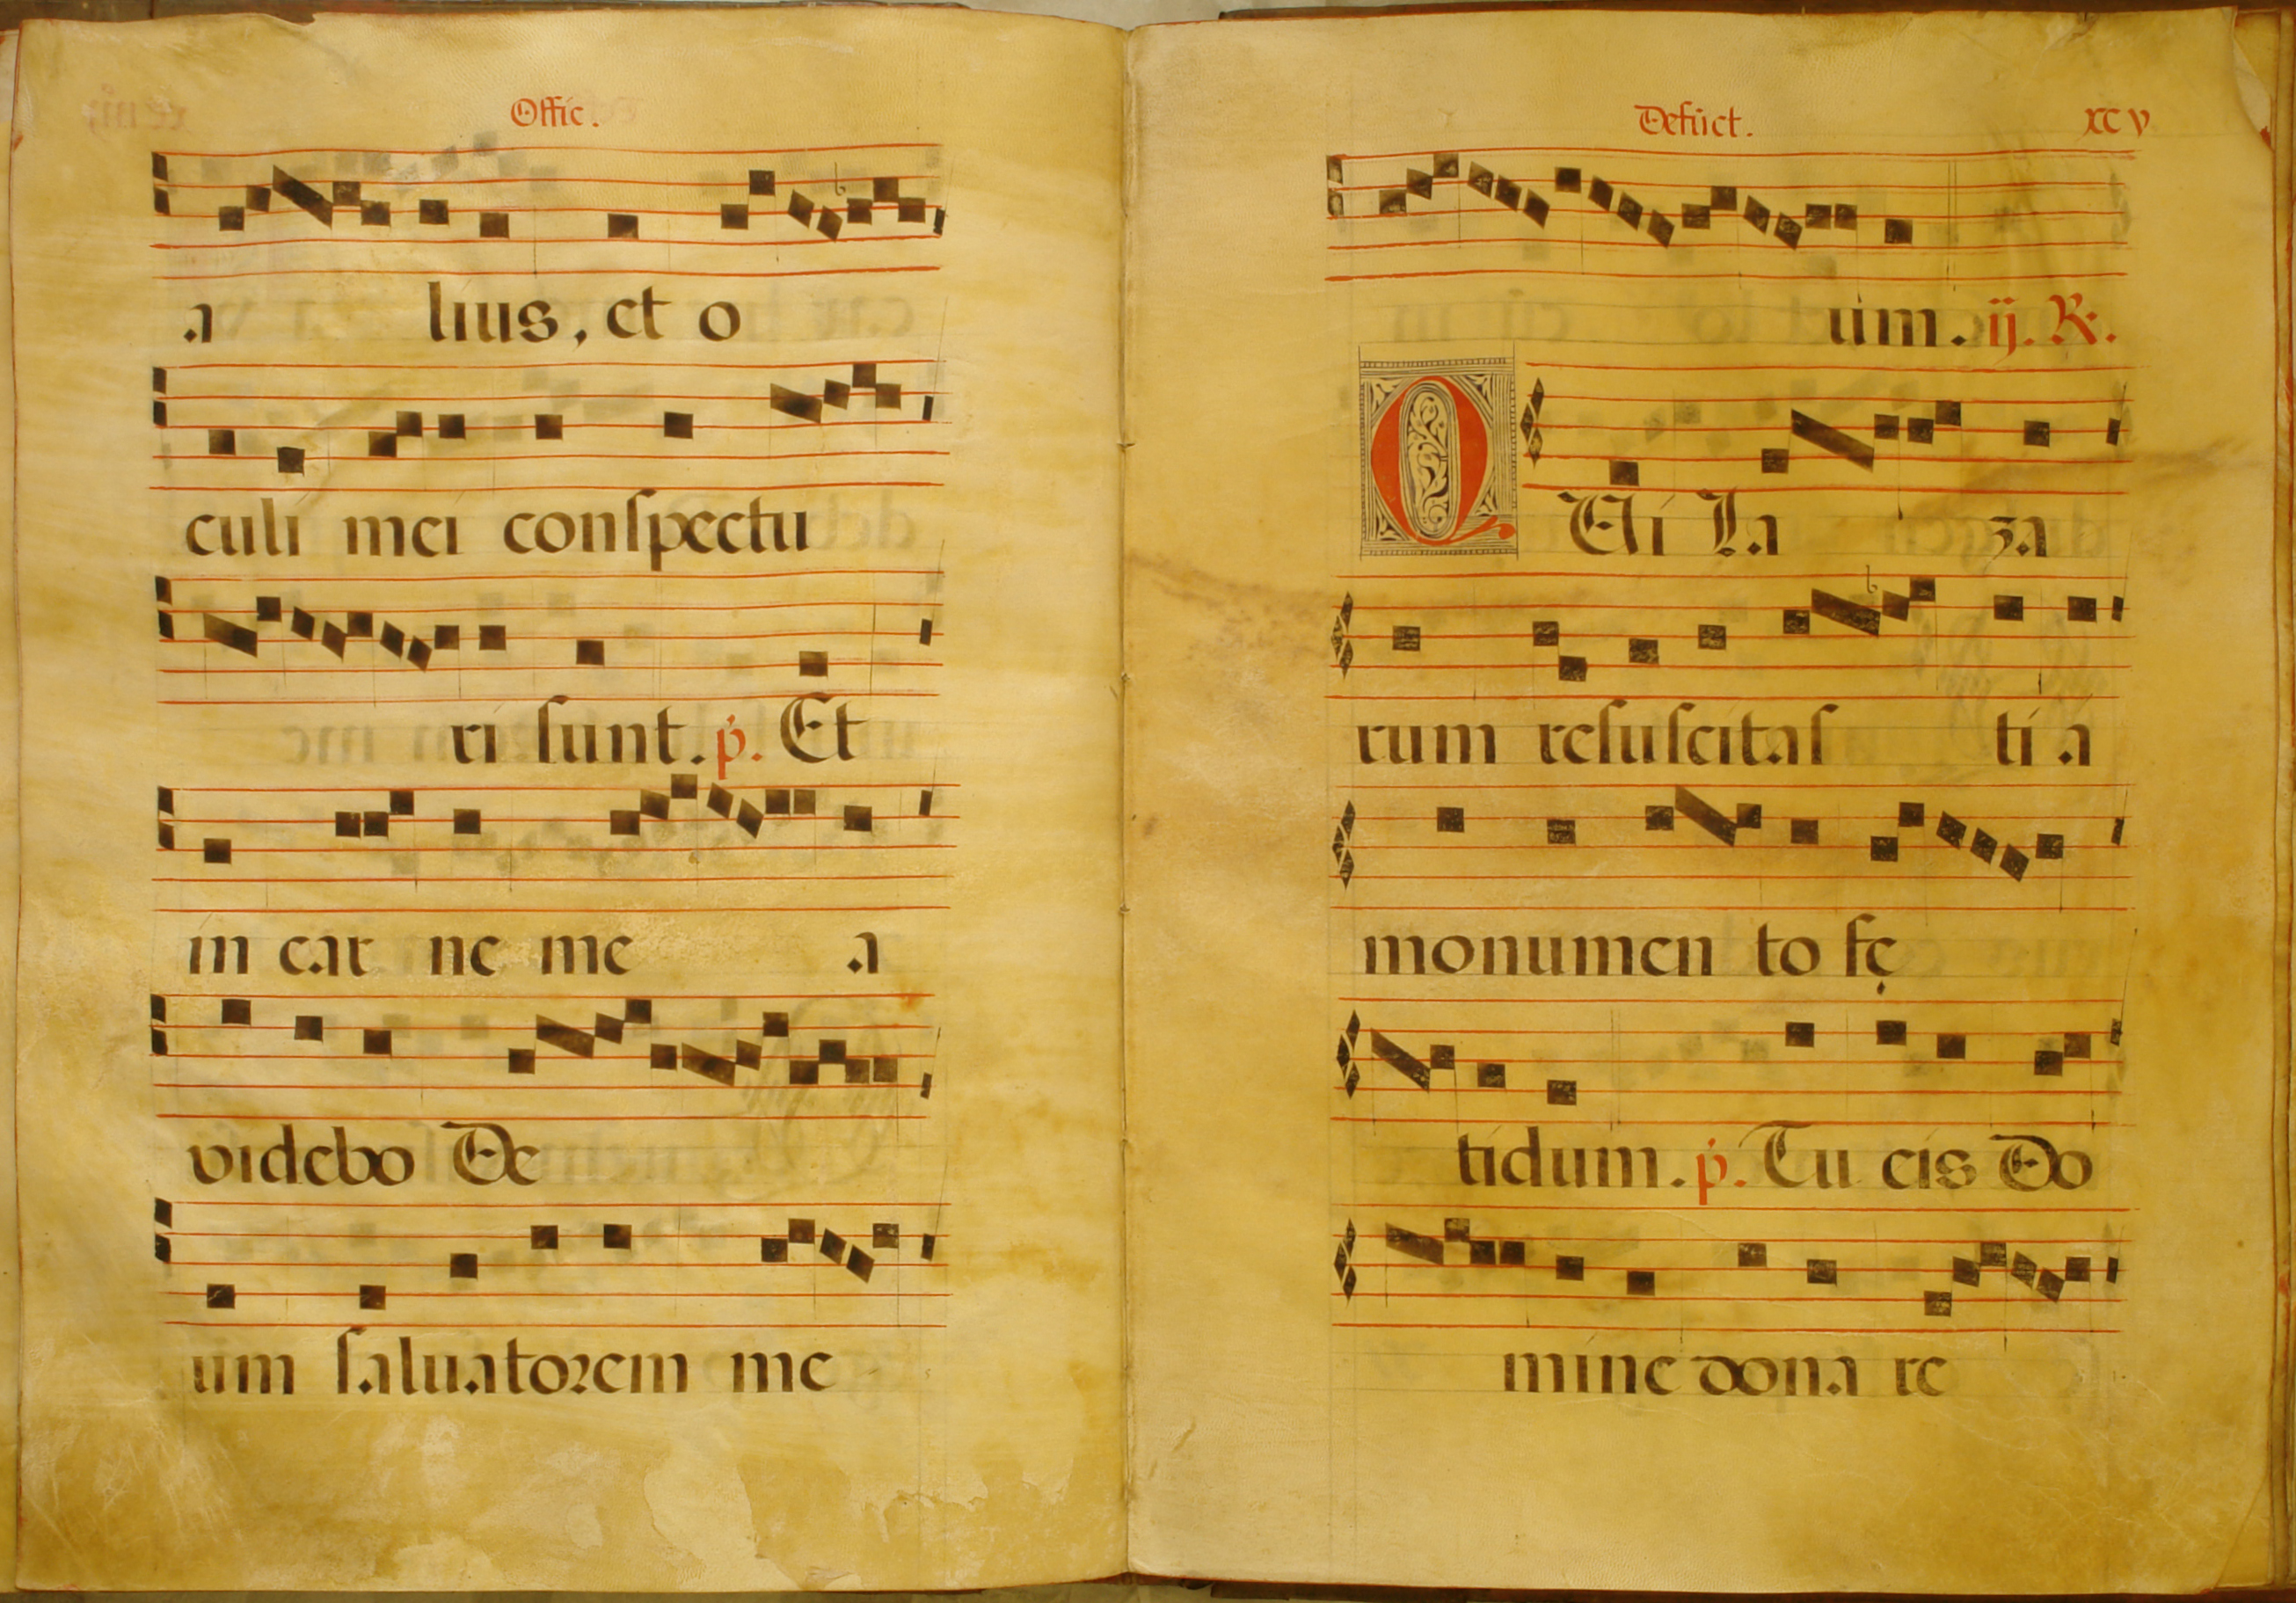 Offic.
a lius, et o
culi mei conſpectu
ri ſunt. p. Et
in car ne me a
videbo De
um ſaluatorem me
Defūct. xcv
um. ij. R.
QUi La za
rum reſuſcitaſ ti a
monumen to fę
tidum. p. Tu eis Do
mine dona re